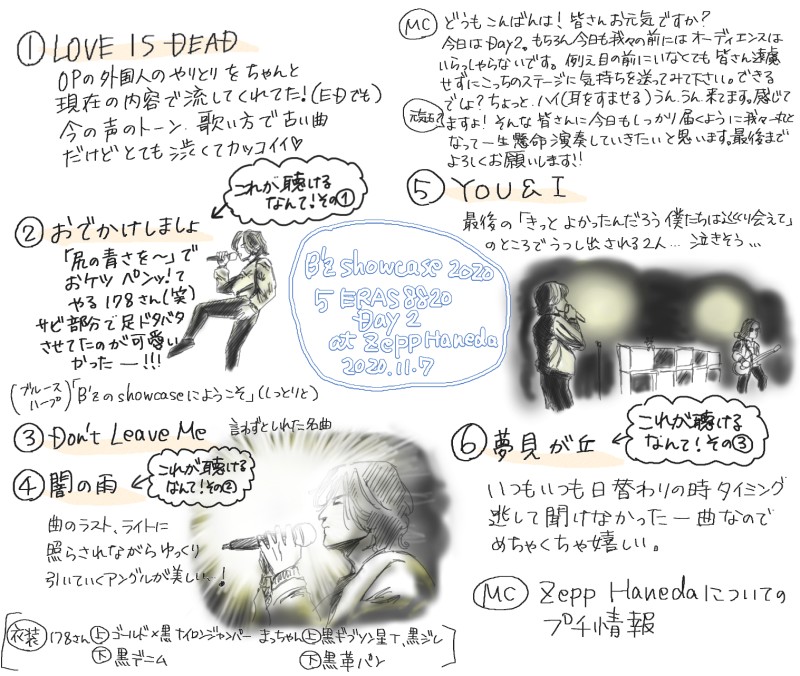 ① LOVE IS DEAD
OPの外国人のやりとりをちゃんと
現在の内容で流してくれてた!(EDでも)
今の声のトーン、歌い方で古い曲
だけどとても渋くてカッコイイ♡
これが聴ける
なんて!その①
② おでかけしましょ
「尻の青さを〜」で
おケツ ペンッ!て
やる178さん(笑)
サビ部分で足ドタバタ
させてたのが可愛い
かったー!!!
(ブルースハープ)「B'zのshowcaseにようこそ」(しっとりと)
③ Don't Leave Me
言わずとしれた名曲
④ 闇の雨
これが聴ける
なんて!その②
曲のラスト、ライトに
照らされながらゆっくり
引いていくアングルが美しい…!
衣装 178さん 上 ゴールド×黒 ナイロンジャンパー まっちゃん 上 黒ギブソン星T、黒ジレ
下 黒デニム 下 黒革パン
B'z showcase 2020
5 ERAS 8820
Day 2
at Zepp Haneda
2020.11.7
MC どうもこんばんは!皆さんお元気ですか?
今日はDay2。もちろん今日も我々の前にはオーディエンスは
いらっしゃらないです。例え目の前にいなくても皆さん遠慮
せずにこっちのステージに気持ちを送ってみて下さい。できる
でしょ?ちょっと、ハイ(耳をすませる)うん、うん、来てます。感じて
ますよ!そんな皆さんに今日もしっかり届くように我々一丸と
なって一生懸命演奏していきたいと思います。最後まで
よろしくお願いします!!
⑤ YOU & I
最後の「きっと よかったんだろう 僕たちは巡り会えて」
のところでうつし出される2人…泣きそう…
⑥ 夢見が丘
これが聴ける
なんて!その③
いつもいつも日替わりの時タイミング
逃して聞けなかった一曲なので
めちゃくちゃ嬉しい。
MC Zepp Hanedaについての
プチ情報